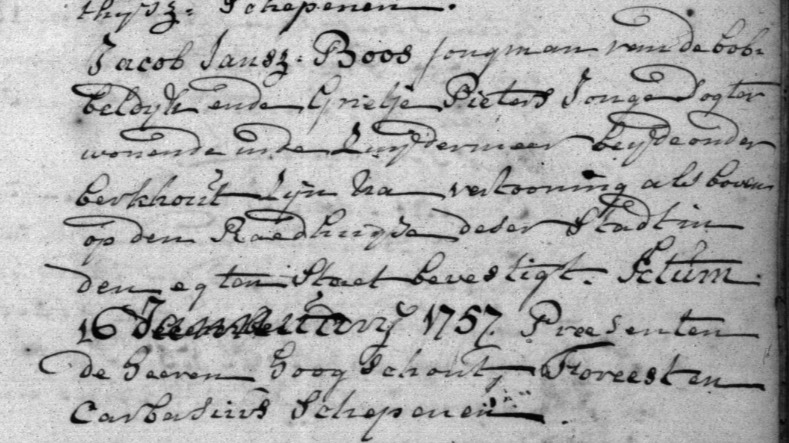 thijsz: Schepenen.
Jacob Jansz: Boos jongman van de bob=
beldijk ende Grietje Pieters Jonge dogter
wonende inde Zuijdermeer beijde onder
berkhout Zijn Na vertooning als boven
op den Raedhuijse deser Stadt in
den egten Staet bevestigt. Actum
16 Januarij 1757. Presenten
de heeren Hoog Schout, Foreest en
Carbasius Schepenen